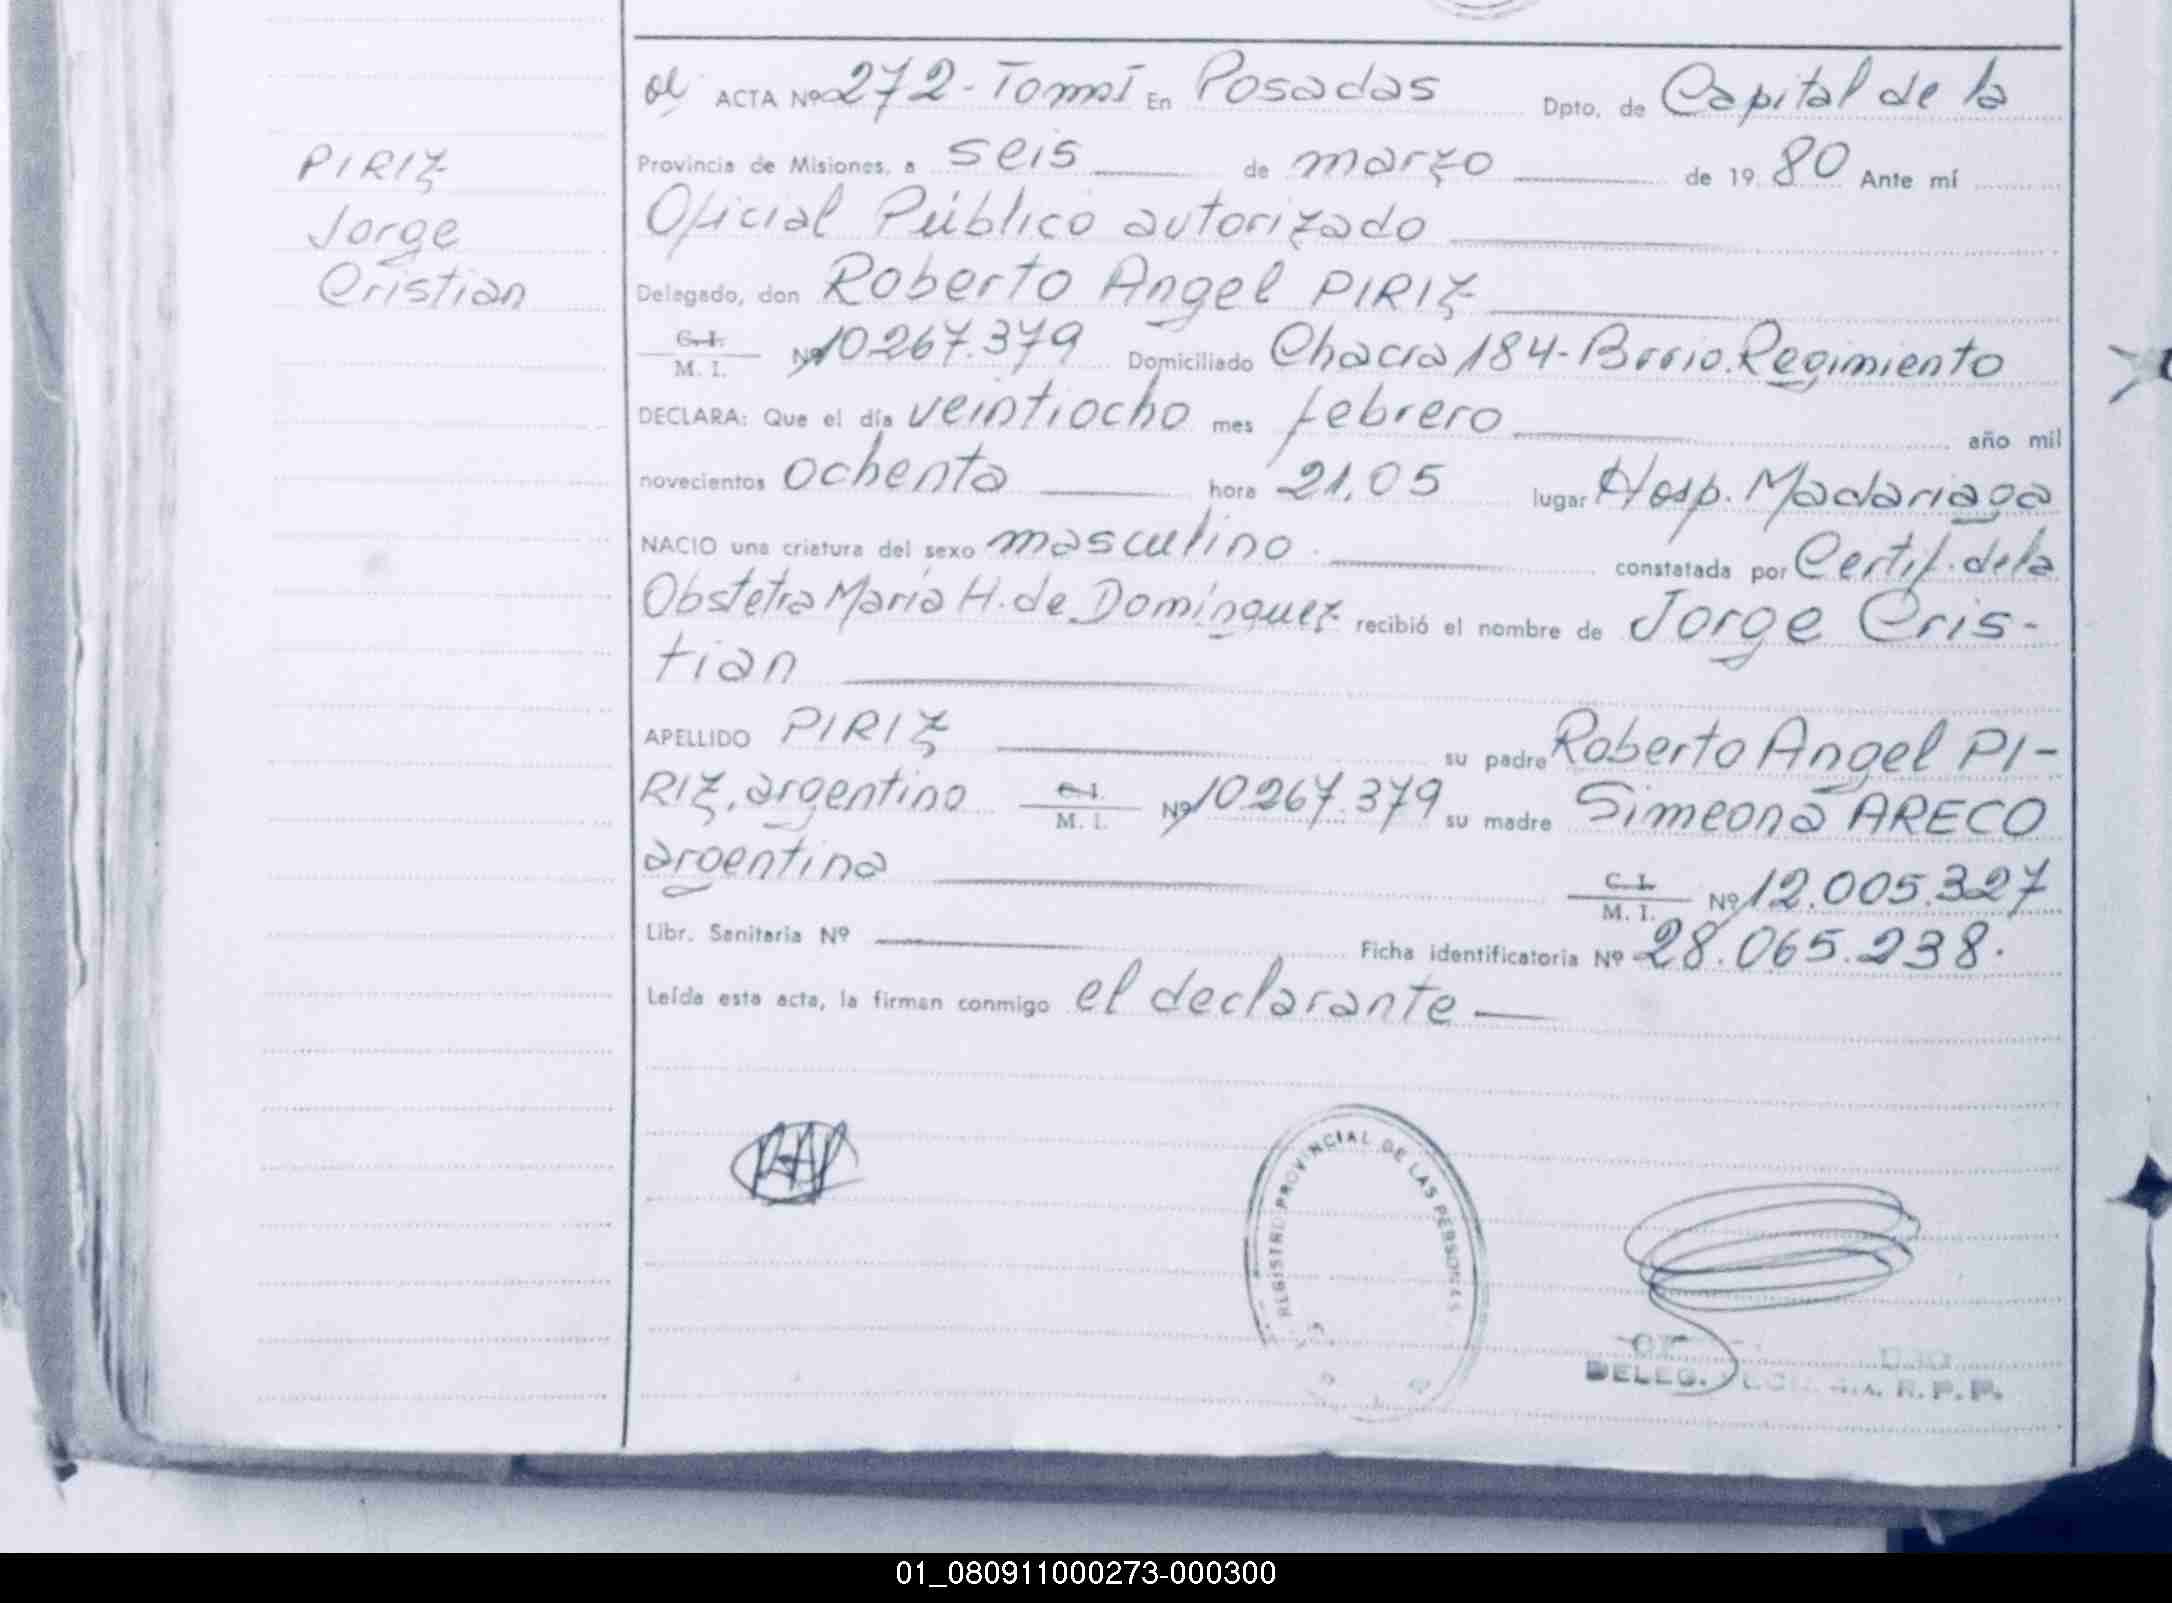 ACTA Nº 272 - Tomo I En Posadas Dpto. de Capital de la
PIRIZ
Provincia de Misiones, a seis de marzo de 1980 Ante mí
Jorge
Oficial Público autorizado
Cristian
Delegado, don Roberto Angel PIRIZ
C. I.
M. I. Nº 10267.379 Domiciliado Chacra 184 - Brrio. Regimiento
DECLARA: Que el día veintiocho mes febrero año mil
novecientos ochenta hora 21.05 lugar Hosp. Madariaga
NACIO una criatura del sexo masculino constatada por Certif. de la
Obstetra María H. de Domínguez recibió el nombre de Jorge Cris-
tian
APELLIDO PIRIZ su padre Roberto Angel PI-
RIZ, argentino C. I. M. I. Nº 10267.379 su madre Simeona ARECO
argentina C. I. M. I. Nº 12.005.327
Libr. Sanitaria Nº Ficha identificatoria Nº 28.065.238.
Leída esta acta, la firman conmigo el declarante
REGISTRO PROVINCIAL DE LAS PERSONAS
DELEG. R.P.P.
01_080911000273-000300